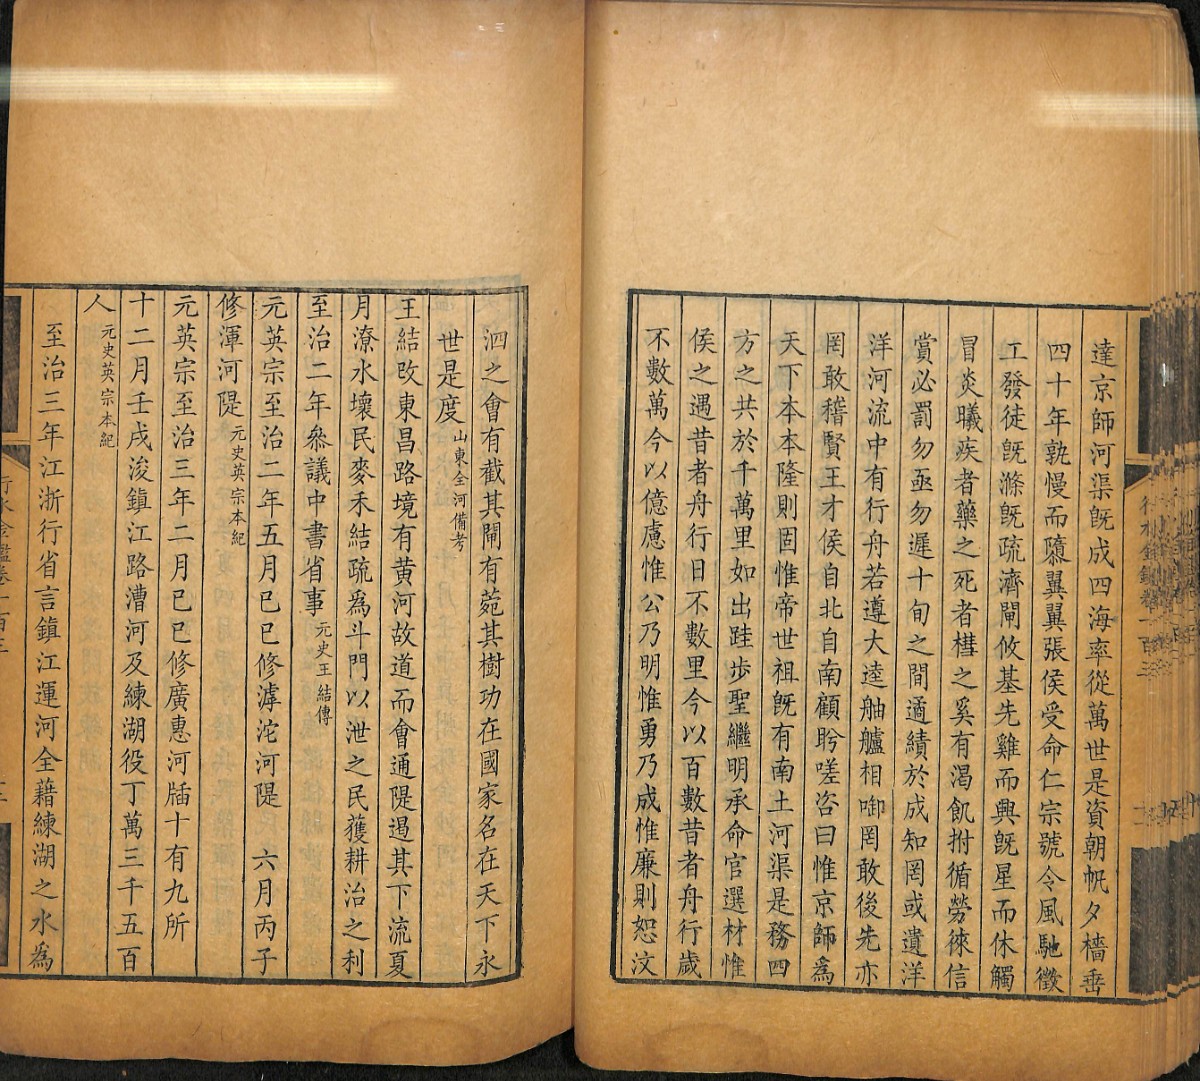 達京師河渠既成四海率從萬世是資朝帆夕檣垂
四十年孰慢而隳翼翼張侯受命仁宗號令風馳徵
工發徒既滌既疏濟閘攸基先雞而興既星而休觸
冒炎曦疾者藥之死者槥之奚有渴飢拊循勞徠信
賞必罰勿亟勿遲十旬之間遹績於成知罔或遺洋
洋河流中有行舟若遵大逵舳艫相啣罔敢後先亦
罔敢稽賢王才侯自北自南顧盻嗟咨曰惟京師為
天下本本隆則固惟帝世祖既有南土河渠是務四
方之共於千萬里如出跬步聖繼明承命官選材惟
侯之遇昔者舟行日不數里今以百數昔者舟行歲
不數萬今以億慮惟公乃明惟勇乃成惟廉則恕汶
泗之會有截其閘有菀其樹功在國家名在天下永
世是度山東全河備考
王結改東昌路境有黃河故道而會通隄遏其下流夏
月潦水壞民麥禾結疏為斗門以泄之民獲耕治之利
至治二年叅議中書省事元史王結傳
元英宗至治二年五月己巳修滹沱河隄 六月丙子
修渾河隄元史英宗本紀
元英宗至治三年二月己巳修廣惠河牐十有九所
十二月壬戌浚鎮江路漕河及練湖役丁萬三千五百
人元史英宗本紀
至治三年江浙行省言鎮江運河全藉練湖之水為
行水金鑑卷一百三